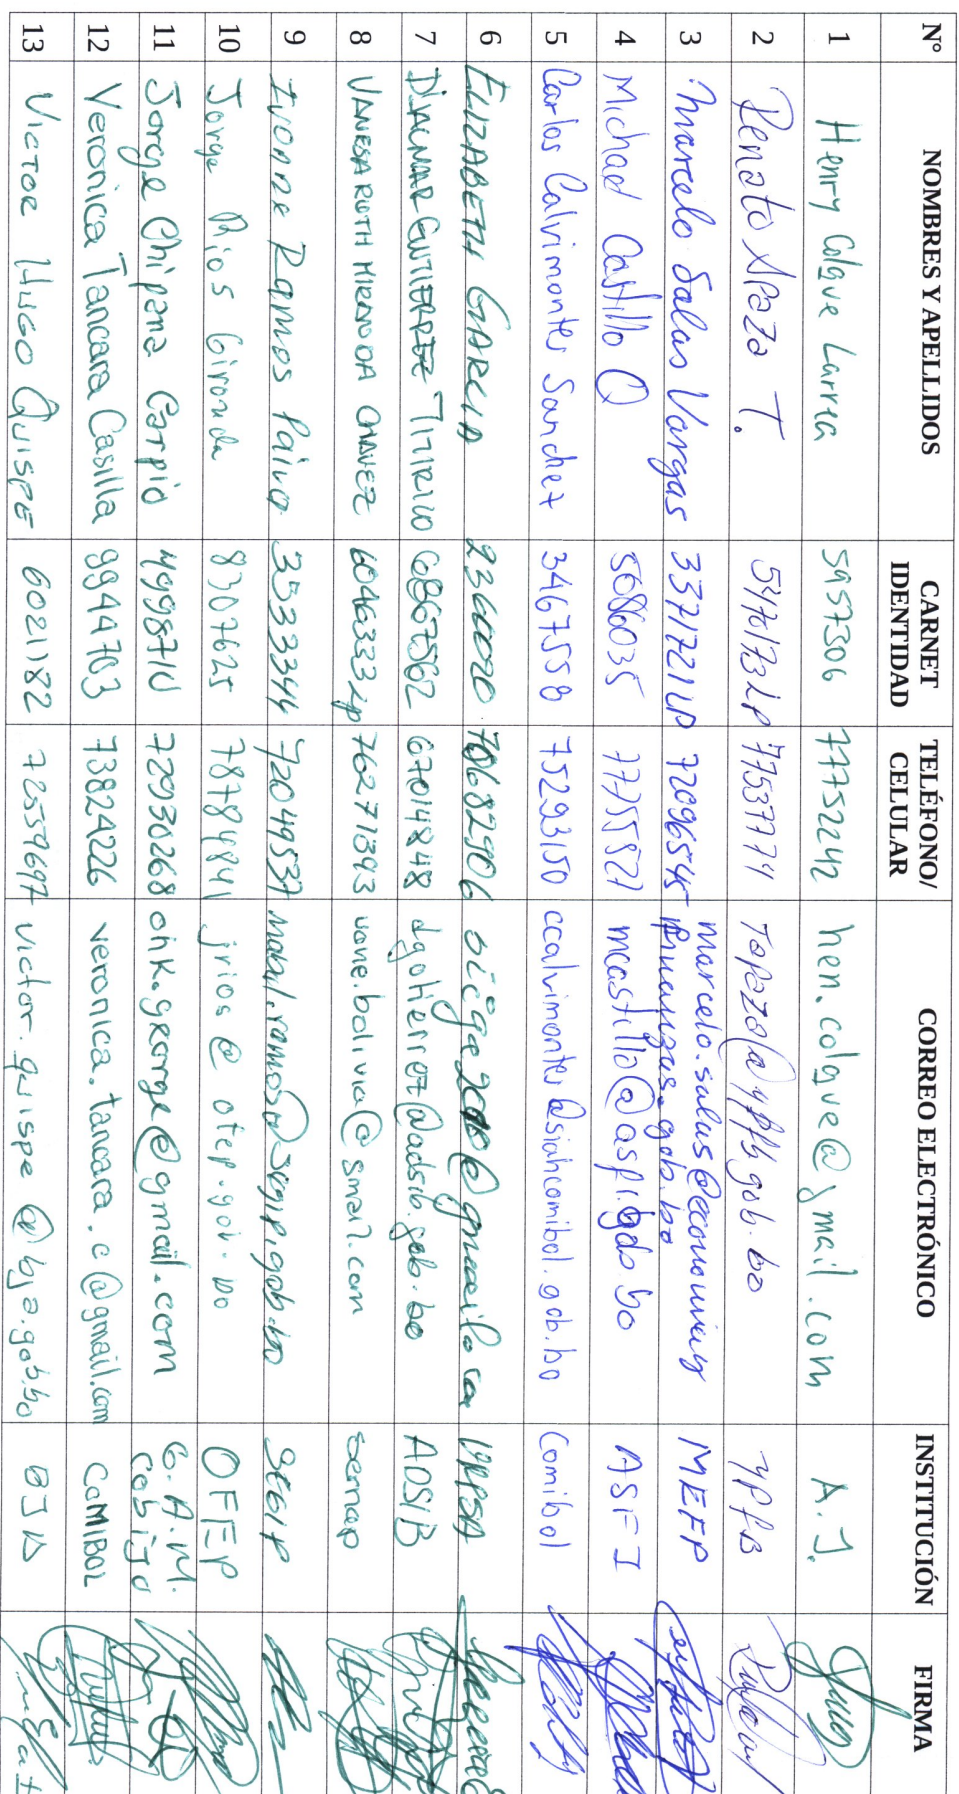 N° NOMBRES Y APELLIDOS CARNET IDENTIDAD TELÉFONO/ CELULAR CORREO ELECTRÓNICO INSTITUCIÓN FIRMA
1 Henry Colque Larrea 5957306 77752242 hen.colque@gmail.com A.J.
2 Renato Apaza T. LP rapaza@ypfb.gob.bo YPFB
3 Marcelo Salas Vargas 3371721LP 72096545 marcelo.salas@economiay
finanzas.gob.bo MEFP
4 Michael Castillo Q 5686035 77755527 mcastillo@asfi.gob.bo ASFI
5 Carlos Calvimontes Sanchez 3467558 75293150 ccalvimontes@siahcomibol.gob.bo Comibol
6 ELIZABETH GARCIA 70682906
7 DIAGMAR GUTIERREZ TITIRICO 6867562 67014848 dgutierrez@adsib.gob.bo ADSIB
8 VANESA RUTH MIRANDA CHAVEZ 6046333 LP 76271393 vane.bolivia@gmail.com sernap
9 Ivonne Ramos Paiva 3533344 72049537 SEGIP
10 Jorge Rios Gironda 8307625 78784841 jrios@ofep.gob.bo OFEP
11 Jorge Chipana Carpio 72930268 ohk.george@gmail.com G.A.M.
Cobija
12 Veronica Tancara Casilla 9944703 73824226 veronica.tancara.c@gmail.com COMIBOL
13 VICTOR HUGO QUISPE 6021182 72559697 victor.quispe@bja.gob.bo BJA